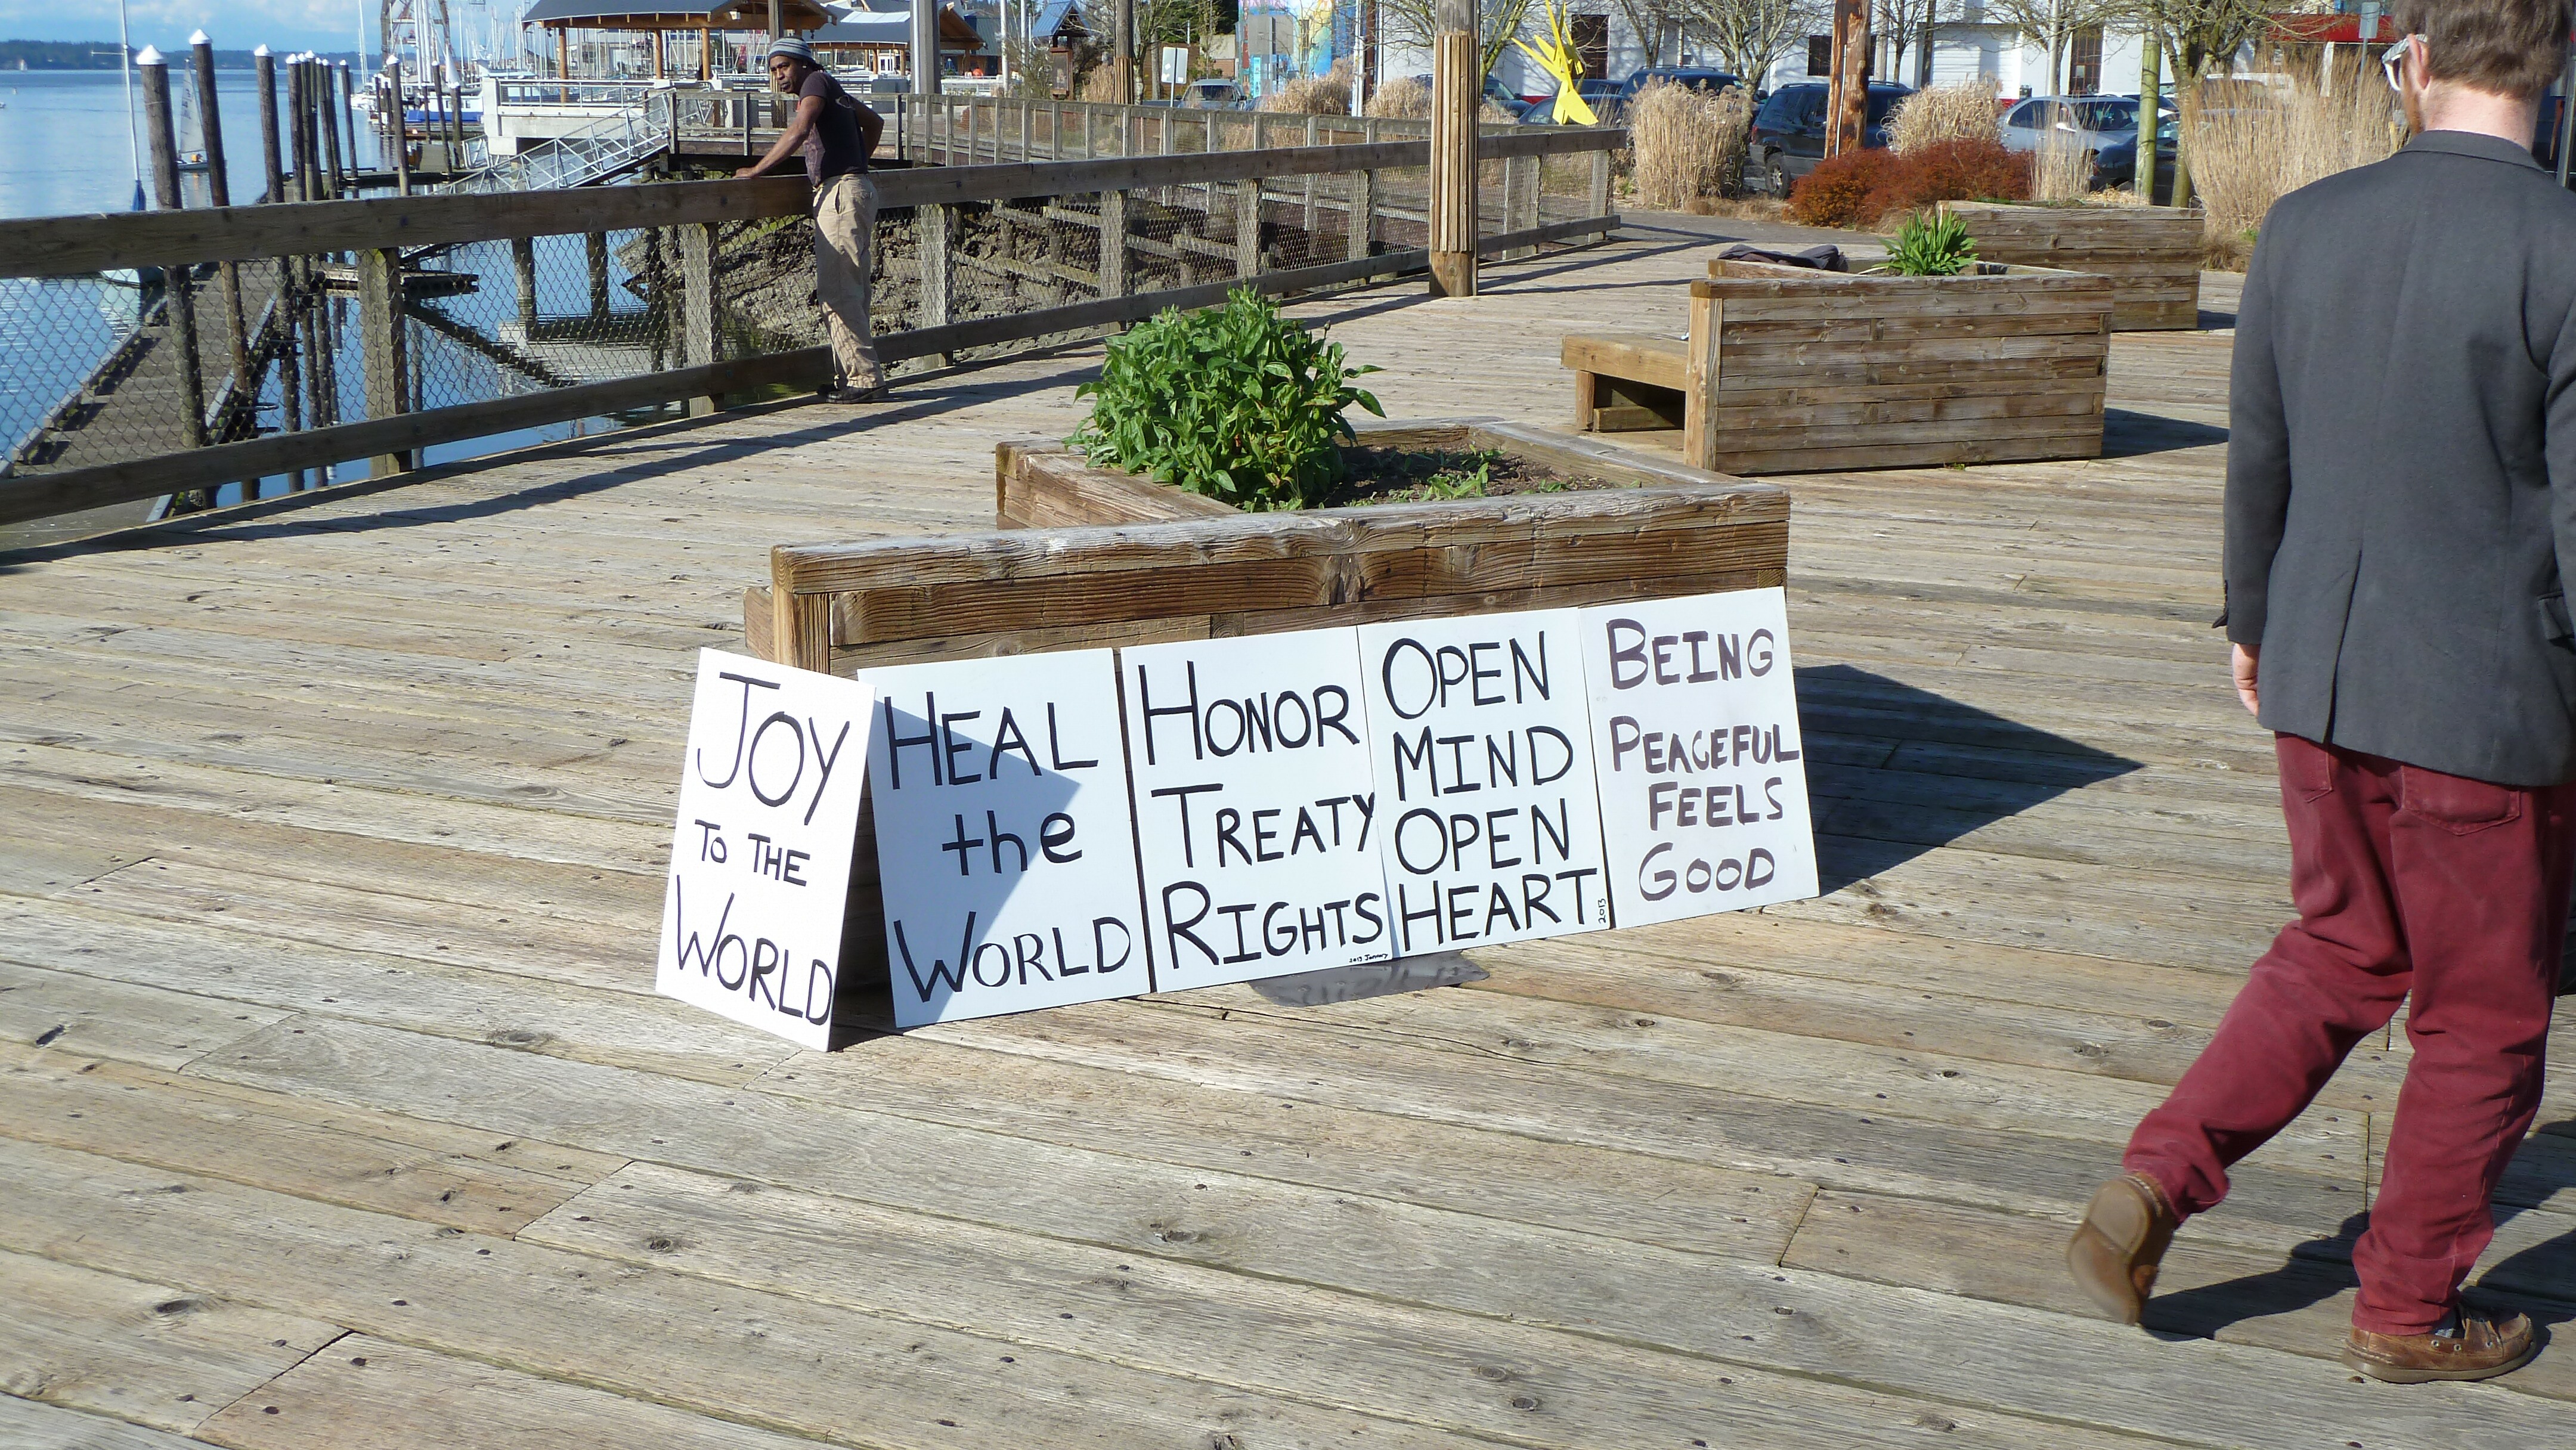 JOY
TO THE
WORLD
HEAL
the
WORLD
HONOR
TREATY
RIGHTS
2013 January
OPEN
MIND
OPEN
HEART
2013
BEING
PEACEFUL
FEELS
GOOD